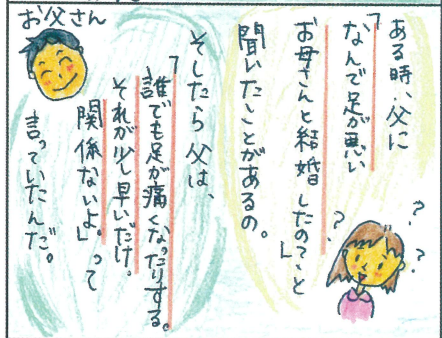 ある時、父に
「なんで足が悪い
お母さんと結婚したの?」と
聞いたことがあるの。
そしたら父は、
「誰でも足が痛くなったりする。
それが少し早いだけ。
関係ないよ。」って
言っていたんだ。
お父さん
? ? ? ?